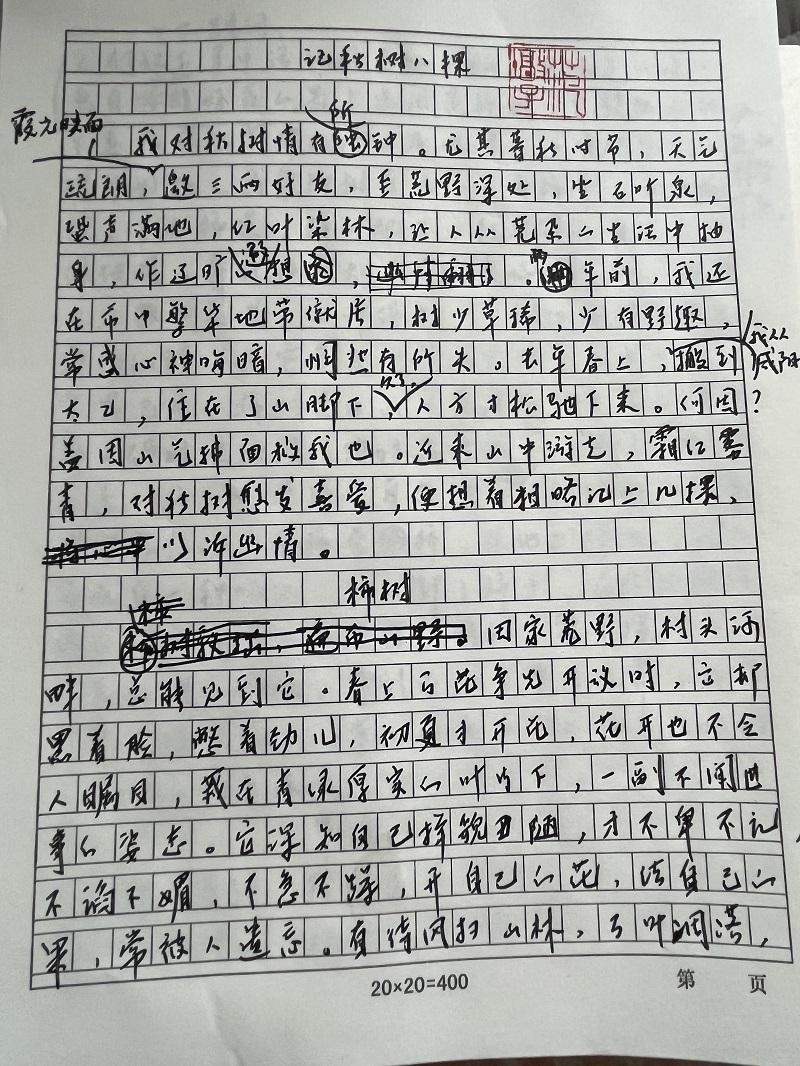 记秋树八棵
所
霞光映面，
我对秋树情有独钟。尤其暮秋时节，天气
疏朗，邀三两好友，至荒野深处，坐石听泉，
蛩声满地，红叶染林，让人从芜杂的生活中抽
身，作辽旷遐想。两年前，我还
在市中繁华地带就居，树少草稀，少有野趣，
常感心神晦暗，惘然有所失。去年春上，我从咸阳搬到
太乙，住在了山脚下，人方才松驰下来。何因？
盖因山气拂面救我也。近来山中游走，霜红雾
青，对秋树愈发喜爱，便想着粗略记上几棵，
以诉幽情。
柿树
田家荒野，村头河
畔，总能见到它。春上百花争先开放时，它却
黑着脸，憋着劲儿，初夏才开花，花开也不令
人瞩目，藏在青绿厚实的叶片下，一副不闻世
事的姿态。它深知自己择貌丑陋，才不卑不亢
不谄不媚，不急不躁，开自己的花，结自己的
果，常被人遗忘。有待风扫山林，万叶凋落，
20×20=400
第 页